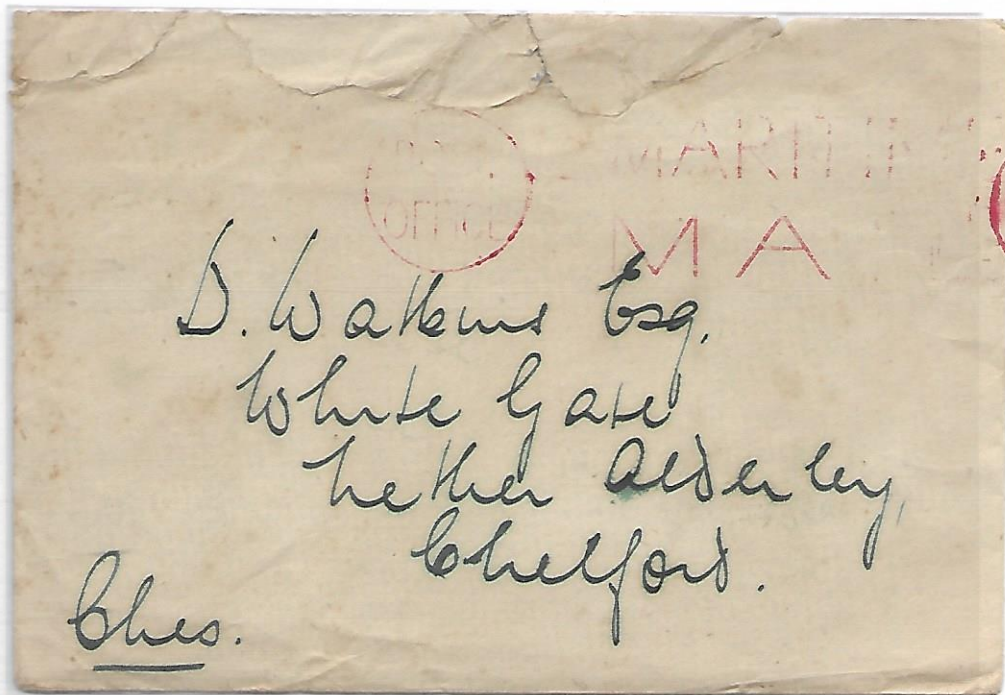 OFFICE
MARITI
MA
D. Watkins Esq.
White Gate
Nether Alderley,
Chelford.
Ches.